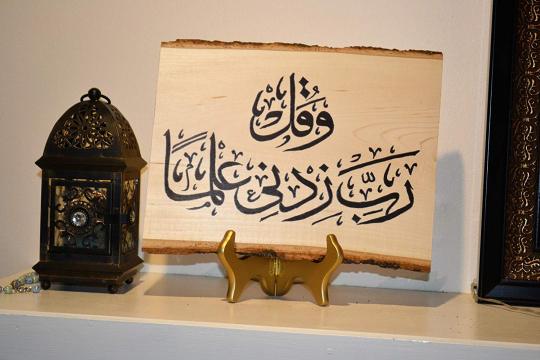 وَقُل
رَبِّ زِدْنِى عِلْمًا